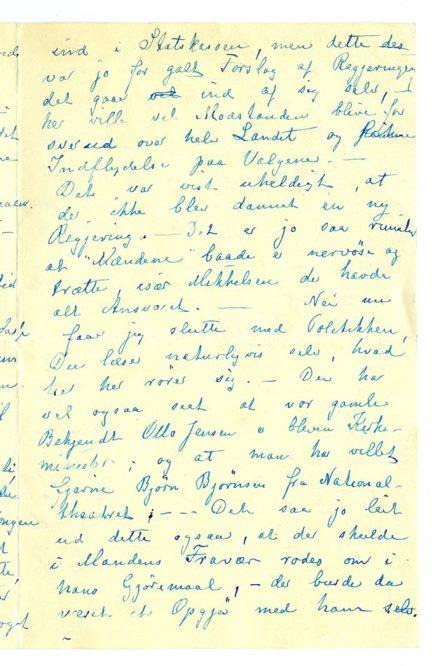 ind i Statskassen, men dette des
var jo for galt Forslag af Regjeringen
det gaar ind af sig selv, I
her ville vel Modstanden blive for
svær ud over hele Landet og
Indflydelse paa Valgene. —
Det var vist uheldigt, at
der ikke blev dannet en ny
Regjering. — 3,2 er jo saa
at "Mændene" baade er nervøse og
trætte, især Mikkelsen der havde
alt Ansvaret. — Nei nu
faar jeg slutte med Politikken,
Du læser naturligvis selv, hvad
her rörer sig. — Du har
vel ogsaa seet at vor gamle
Bekjendt Otto Jensen er bleven Kirke-
minister; og at man har villet
fjerne Bjørn Bjørnson fra National-
theatret; --- Det saa jo leit
ud dette ogsaa, at der skulde
i Mandens Fravær rodes om i
hans Gjöremaal, — der burde da
været et Opgjør med ham selv.